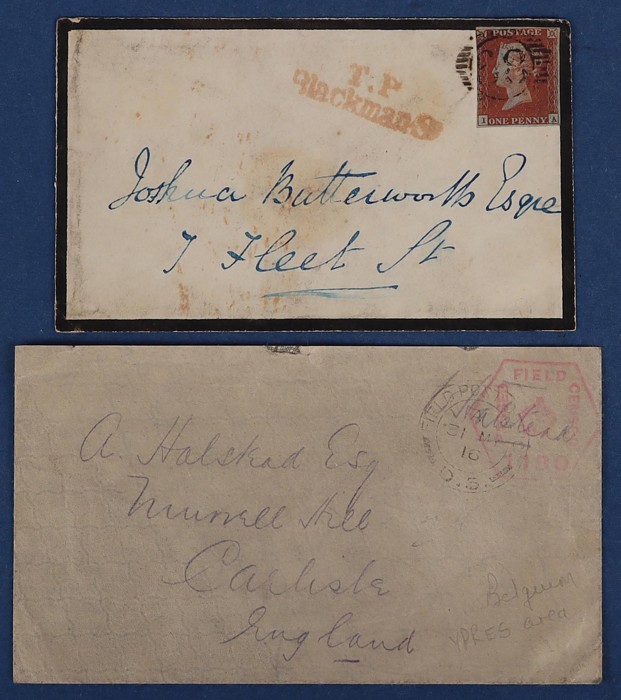 POSTAGE
T.P
Blackman-St
I ONE PENNY A
Joshua Butterworth Esqre
7 Fleet St
FIELD CENSOR
FIELD POST
Halstead
16
A. Halstead Esq
Hill
Carlisle
England
Belgium
YPRES area